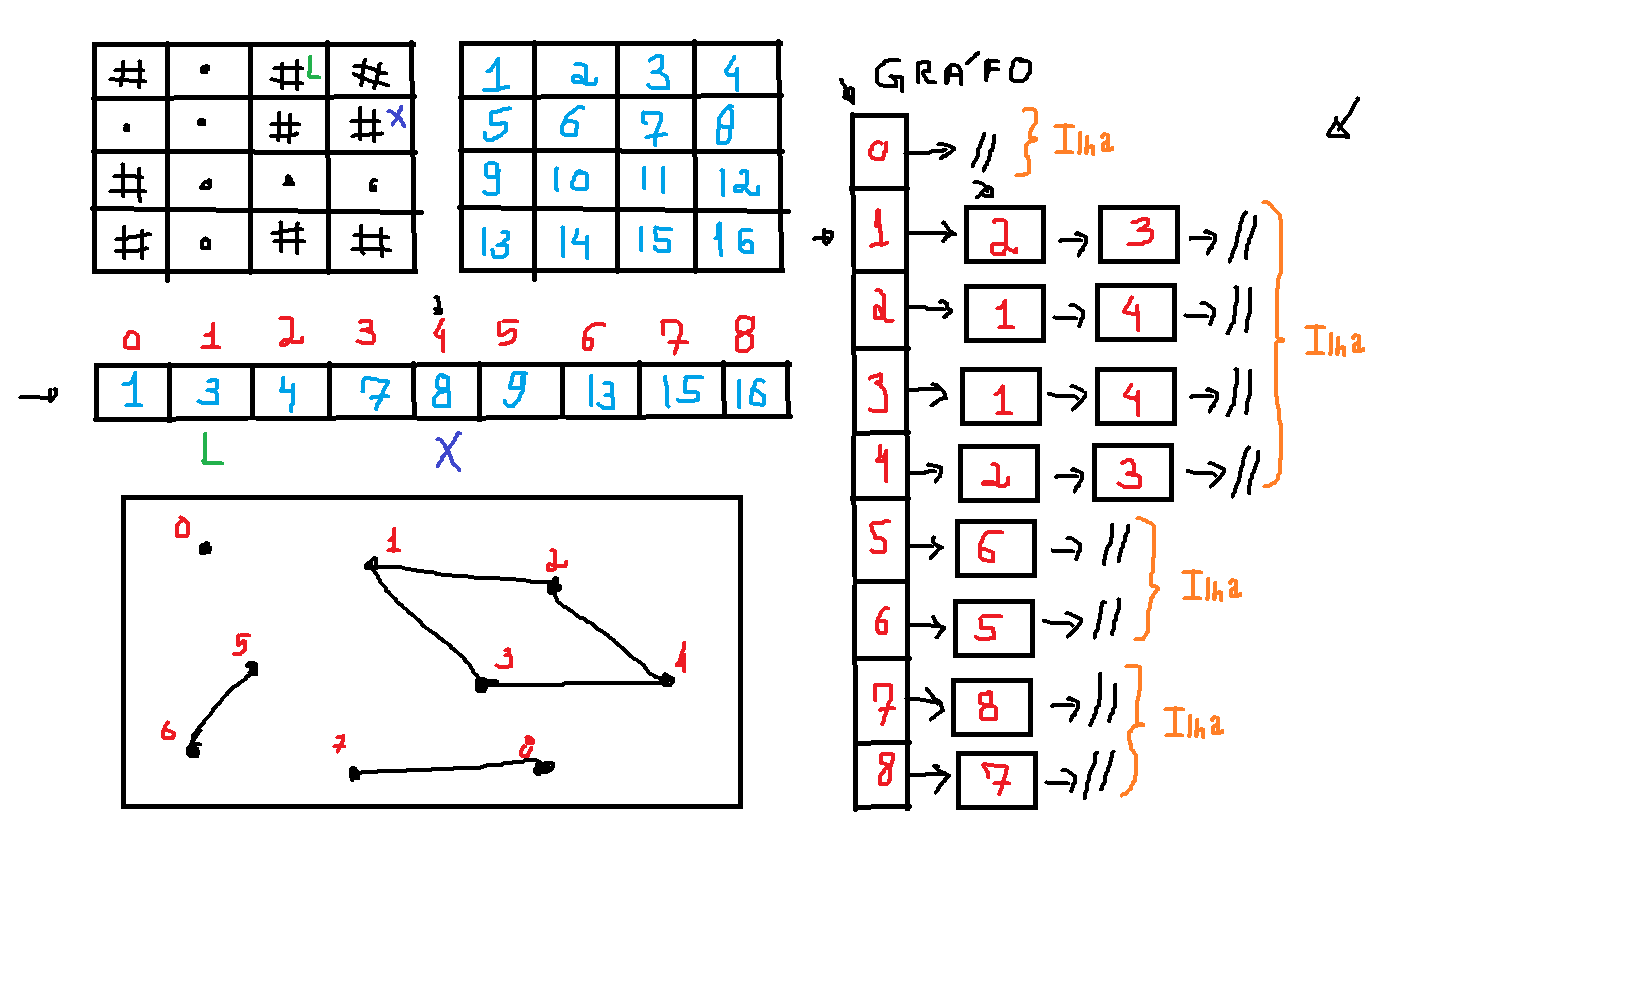 # . #L #
. . # #X
# . . .
# . # #
1 2 3 4
5 6 7 8
9 10 11 12
13 14 15 16
0 1 2 3 4 5 6 7 8
1 3 4 7 8 9 13 15 16
L X
0
1
2
5
3
4
6
7
8
GRÁFO
0 → // } Ilha
1 → 2 → 3 → //
2 → 1 → 4 → //
} Ilha
3 → 1 → 4 → //
4 → 2 → 3 → //
5 → 6 → //
} Ilha
6 → 5 → //
7 → 8 → //
} Ilha
8 → 7 → //